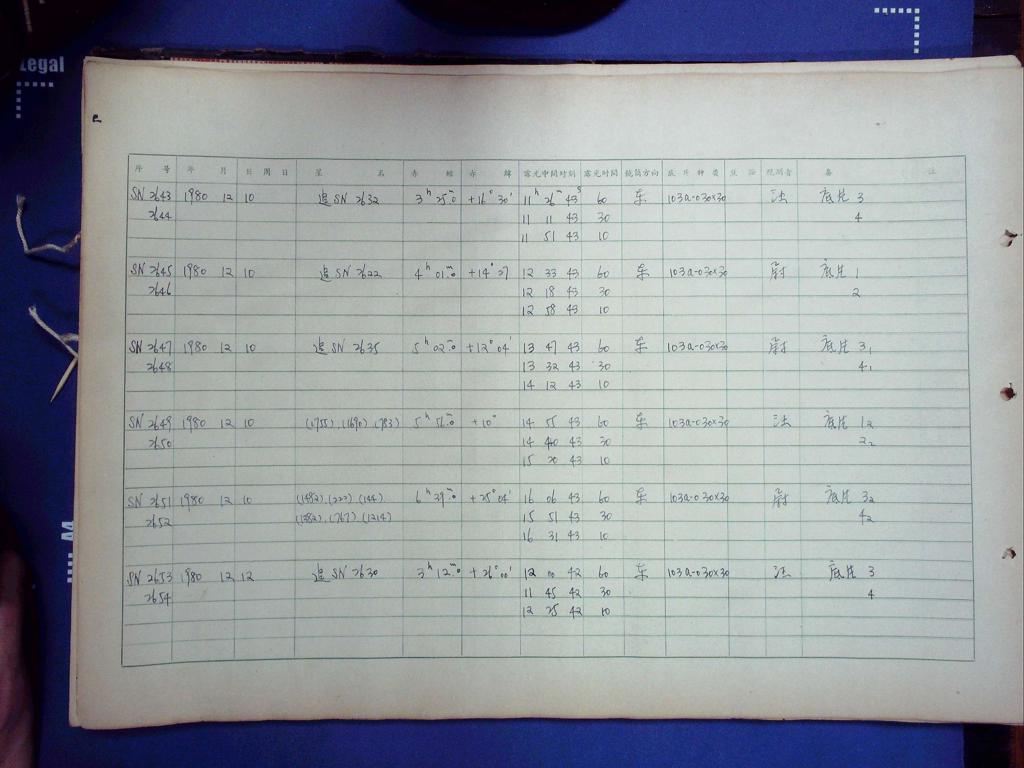 Legal
序 号 年 月 日 周 日 星 名 赤 经 赤 纬 露光中间时刻 露光时间 镜筒方向 底片种类 观测者 备 注
SN 2643 1980 12 10 追 SN 2632 3ʰ 25ᵐ.0 +16° 30′ 11ʰ 26ᵐ 43ˢ 60 东 103a-O 30×30 沈 底片 3
2644 11 11 43 30 4
11 51 43 10
SN 2645 1980 12 10 追 SN 2622 4ʰ 01ᵐ.0 +14° 27 12 33 43 60 东 103a-O 30×30 尉 底片 1
2646 12 18 43 30 2
12 58 43 10
SN 2647 1980 12 10 追 SN 2635 5ʰ 02ᵐ.0 +12° 04′ 13 47 43 60 东 103a-O 30×30 尉 底片 3₁
2648 13 32 43 30 4₁
14 12 43 10
SN 2649 1980 12 10 (1755), (1690) (783) 5ʰ 56ᵐ.0 +10° 14 55 43 60 东 103a-O 30×30 沈 底片 1₂
2650 14 40 43 30 2₂
15 20 43 10
SN 2651 1980 12 10 (1482), (222) (144) 6ʰ 39ᵐ.0 +25° 04′ 16 06 43 60 东 103a-O 30×30 尉 底片 3₂
2652 (1282), (767) (1214) 15 51 43 30 4₂
16 31 43 10
SN 2653 1980 12 12 追 SN 2630 3ʰ 12ᵐ.0 +26° 00′ 12 00 42 60 东 103a-O 30×30 沈 底片 3
2654 11 45 42 30 4
12 25 42 10
A4